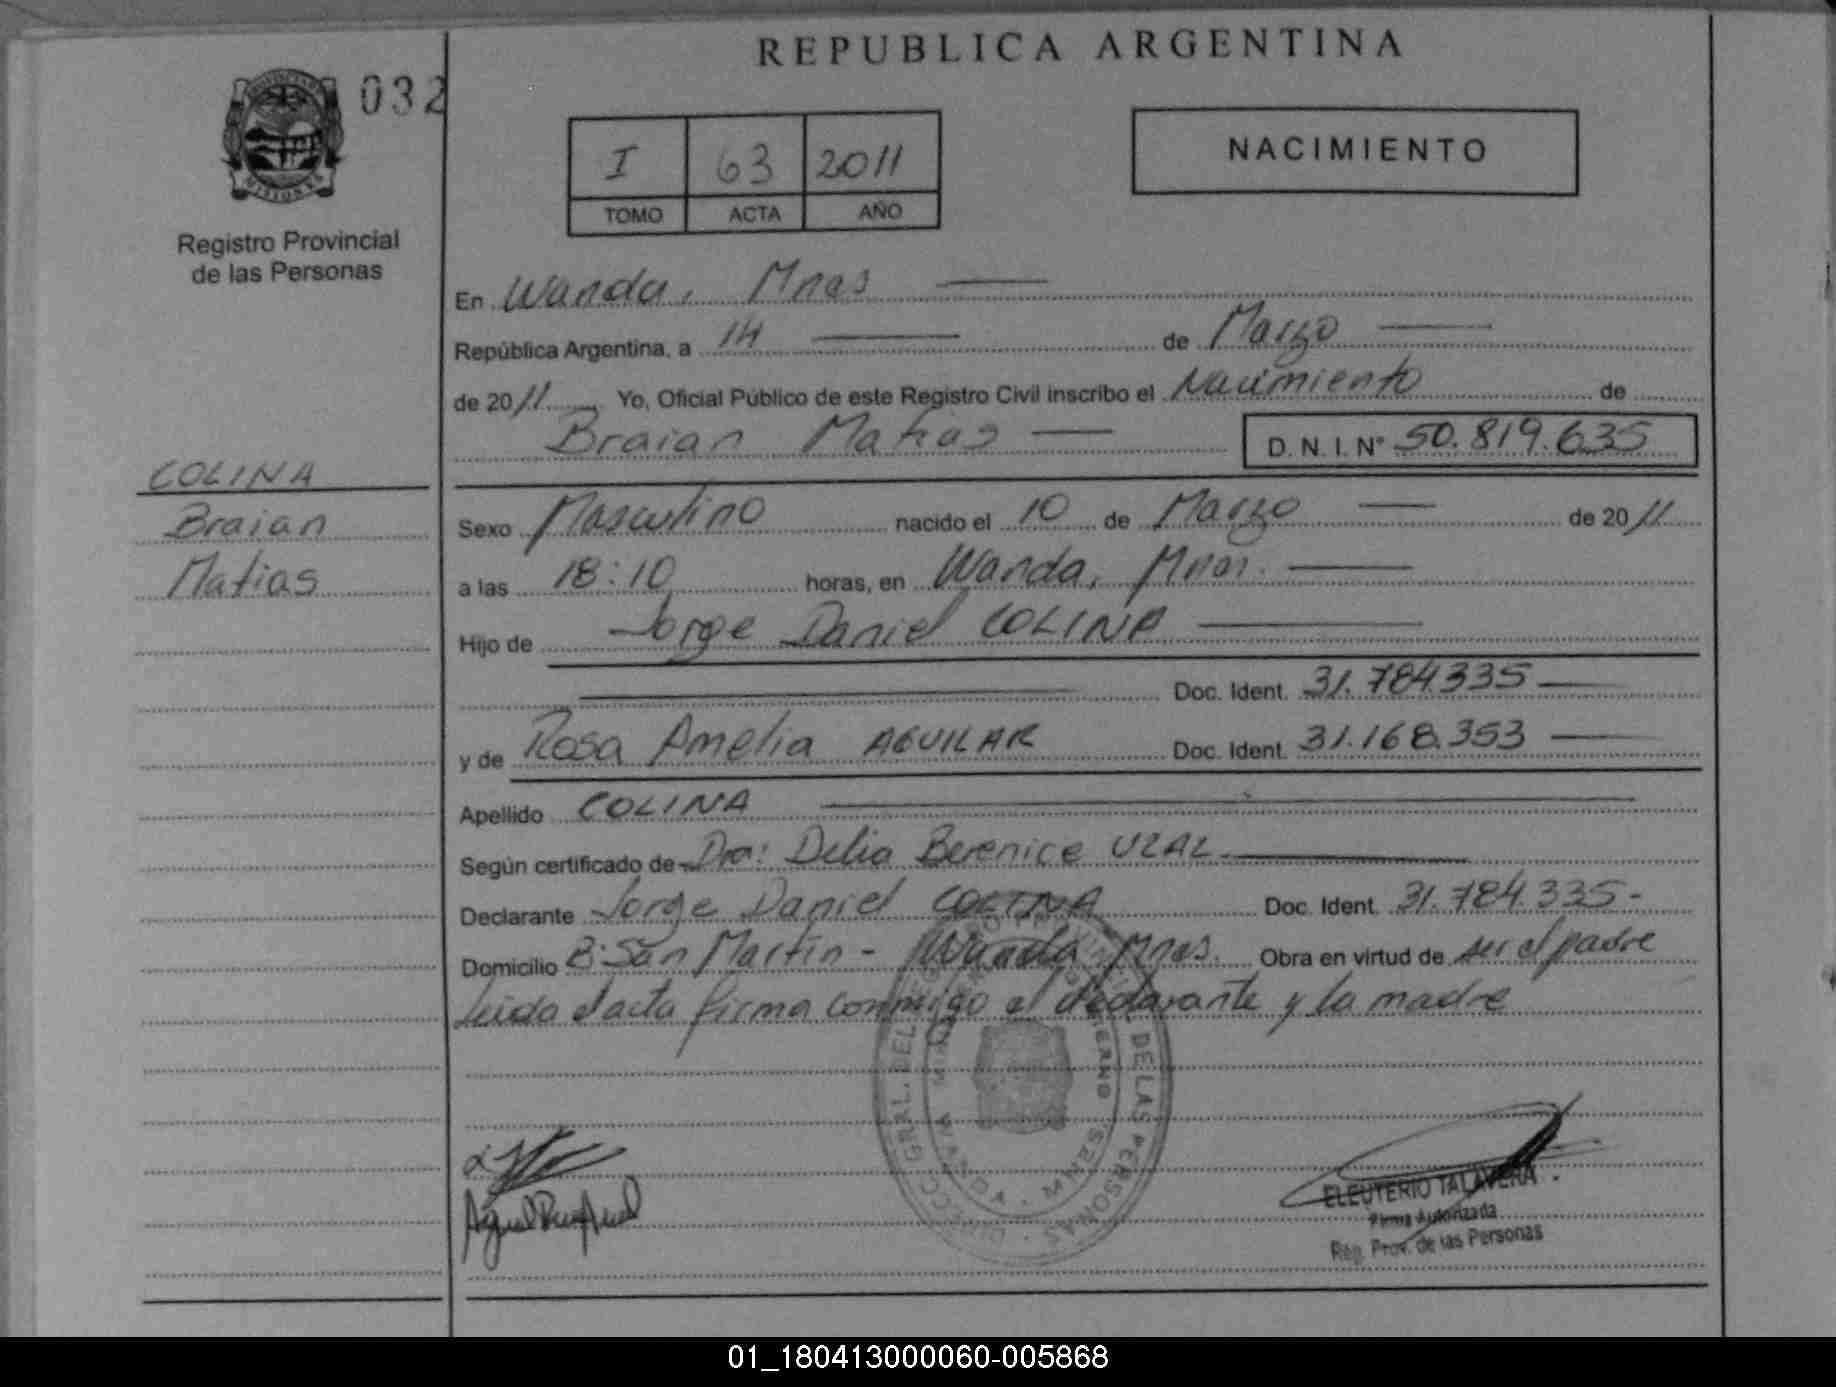 REPUBLICA ARGENTINA
032
I 63 2011
TOMO ACTA AÑO
NACIMIENTO
MISIONES
Registro Provincial
de las Personas
En Wanda, Mnes
República Argentina, a 14 de Marzo
de 2011 Yo, Oficial Público de este Registro Civil inscribo el Nacimiento de
Braian Matias D.N.I. Nº 50.819.635
COLINA
Braian
Matias
Sexo Masculino nacido el 10 de Marzo de 2011
a las 18:10 horas, en Wanda, Mnes.
Hijo de Jorge Daniel COLINA
Doc. Ident. 31.784335
y de Rosa Amelia AGUILAR Doc. Ident. 31.168.353
Apellido COLINA
Según certificado de Dra: Delia Berenice UZAL
Declarante Jorge Daniel COLINA Doc. Ident. 31.784.335-
Domicilio Bº San Martín - Wanda Mnes. Obra en virtud de ser el padre
leida el acta firma conmigo el declarante y la madre
DE LAS PERSONAS
ELEUTERIO TALAVERA
Firma Autorizada
Reg. Prov. de las Personas
01_180413000060-005868